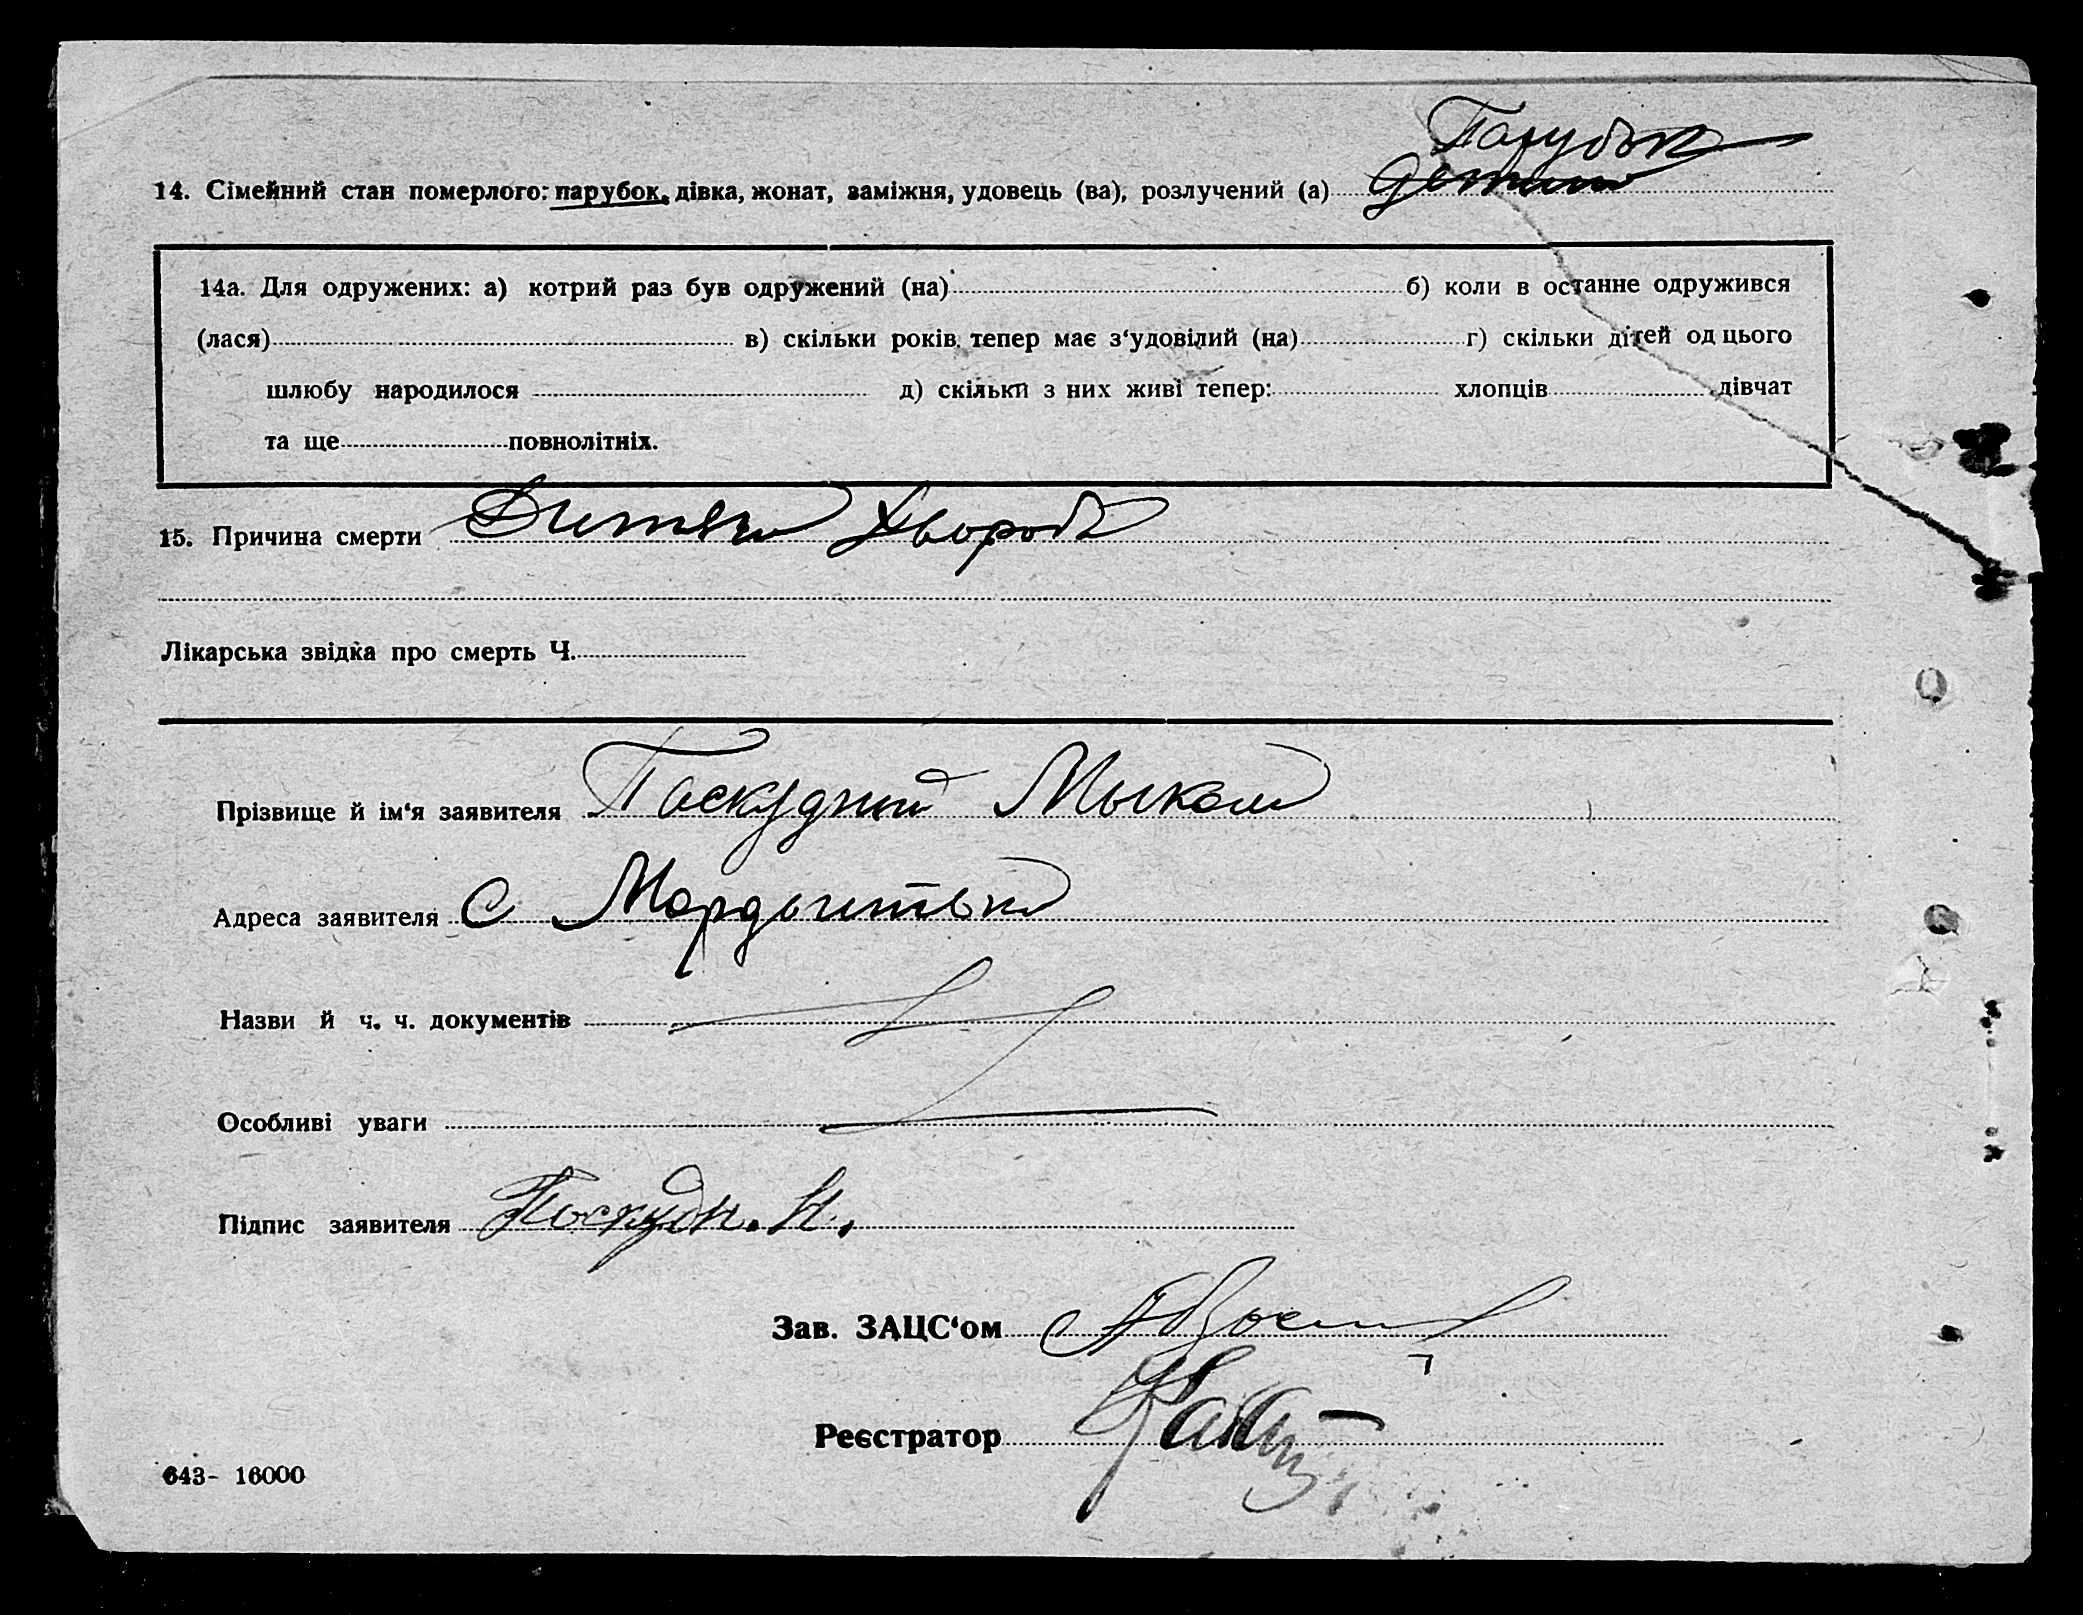 Парубок
14. Сімейний стан померлого: парубок, дівка, жонат, заміжня, удовець (ва), розлучений (а)
14а. Для одружених: а) котрий раз був одружений (на) б) коли в останнє одружився
(лася) в) скільки років тепер має з‘удовілий (на) г) скільки дітей од цього
шлюбу народилося д) скільки з них живі тепер: хлопців дівчат
та ще повнолітніх.
15. Причина смерти Дитяча Хвороба
Лікарська звідка про смерть Ч.
Прізвище й ім‘я заявителя Паскудний Мыкола
Адреса заявителя С
Назви й ч. ч. документів
Особливі уваги
Підпис заявителя Поскудн. М.
Зав. ЗАЦС‘ом
Реєстратор
643- 16000